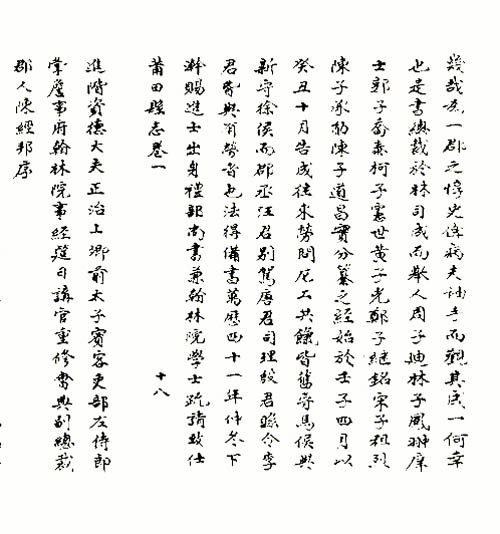 幾哉為一郡之惇史俾病夫袖手而觀其成一何幸
也是書總裁於林司成而舉人周子迪林子鳳翀庠
士郭子喬泰柯子憲世黃子光鄭子繼銘宋子祖烈
陳子承豹陳子道昌實分纂之經始於壬子四月以
癸丑十月告成往來勞問尼工共餼皆舊守馬侯與
新守徐侯而郡丞汪君別駕唐君司理段君縣令李
君皆與有勞者也法得備書萬曆四十一年仲冬下
澣賜進士出身禮部尚書兼翰林院學士疏請致仕
進階資德大夫正治上卿前太子賓客吏部左侍郎
掌詹事府翰林院事經筵日講官重修會典副總裁
郡人陳經邦序
莆田縣志卷一 十八